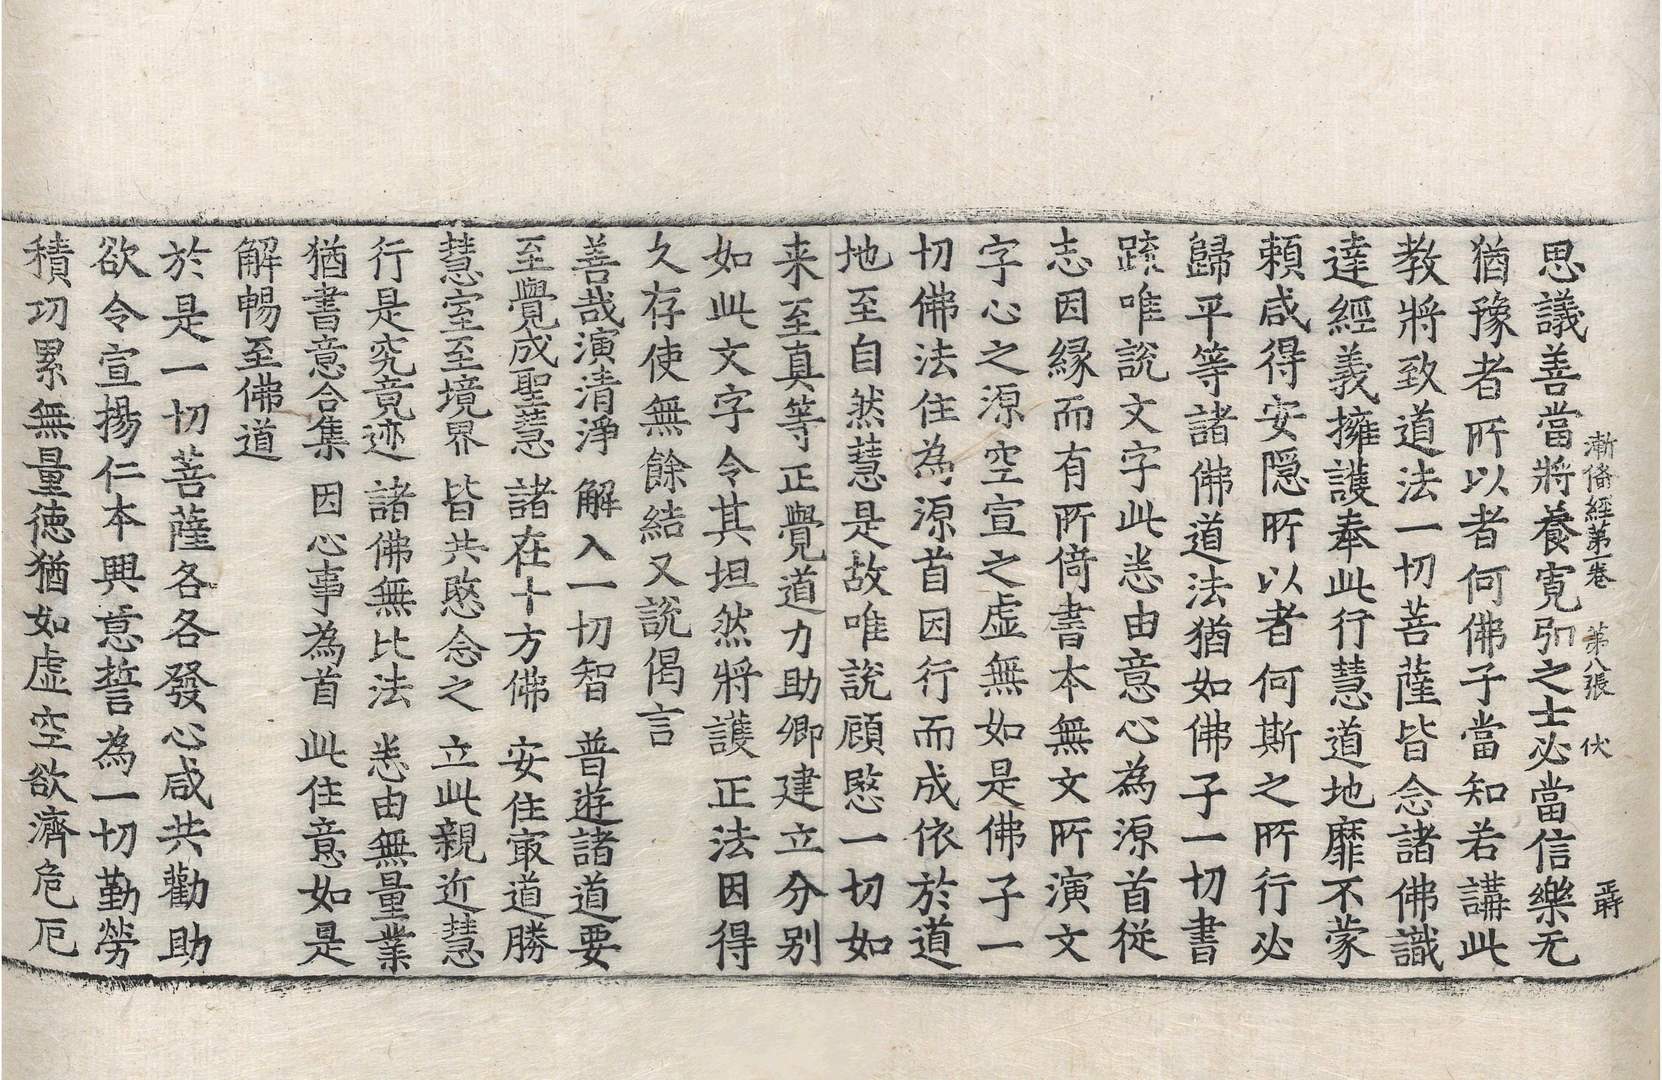 漸備經第一卷　第八張　伏
思議善當將養寬弘之士必當信樂无
猶豫者所以者何佛子當知若講此
教將致道法一切菩薩皆念諸佛識
達經義擁護奉此行慧道地靡不蒙
賴咸得安隱所以者何斯之所行必
歸平等諸佛道法猶如佛子一切書
䟽唯說文字此悉由意心為源首從
志因緣而有所倚書本無文所演文
字心之源空宣之虛無如是佛子一
切佛法住為源首因行而成依於道
地至自然慧是故唯說顧愍一切如
来至真等正覺道力助卿建立分别
如此文字令其坦然將護正法因得
久存使無餘結又說偈言
善哉演清淨　解入一切智　普遊諸道要
至覺成聖慧　諸在十方佛　安住㝡道勝
慧室至境界　皆共愍念之　立此親近慧
行是究竟迹　諸佛無比法　悉由無量業
猶書意合集　因心事為首　此住意如是
解暢至佛道
於是一切菩薩各各發心咸共勸助
欲令宣揚仁本興意誓為一切勤勞
積功累無量徳猶如虛空欲濟危厄